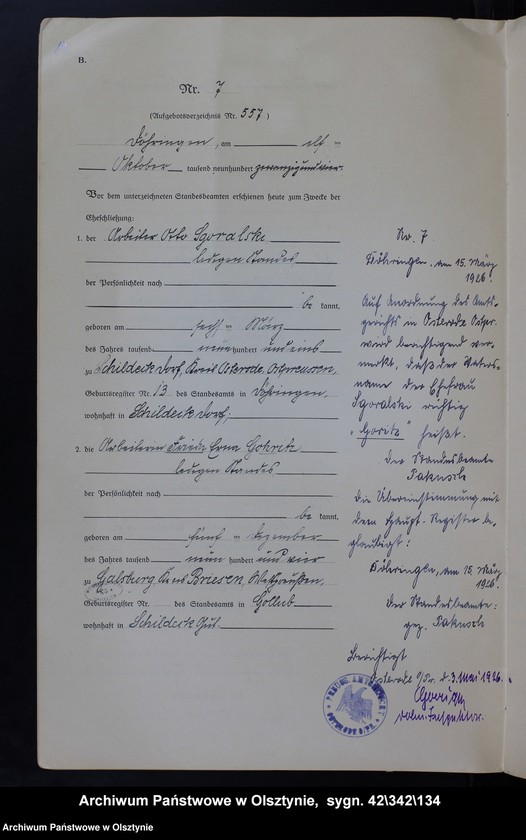 B.
Nr. 7
(Aufgebotsverzeichnis Nr. 557)
Döhringen, am elf ten
Oktober tausend neunhundert zwanzig und vier.
Vor dem unterzeichneten Standesbeamten erschienen heute zum Zwecke der
Eheschließung:
1. der Arbeiter Otto Sgoralski
ledigen Standes
der Persönlichkeit nach
be kannt,
geboren am sech ten März
des Jahres tausend neun hundert und eins
zu Schildeck Dorf, Kreis Osterode, Ostpreussen,
Geburtsregister Nr. 13 des Standesamts in Döhringen,
wohnhaft in Schildeck Dorf;
2. die Arbeiterin Erna Gohritz
ledigen Standes
der Persönlichkeit nach
be kannt,
geboren am fünf ten Dezember
des Jahres tausend neun hundert und vier
zu Galsburg Kreis Briesen, Westpreußen,
Geburtsregister Nr. des Standesamts in Gollub
wohnhaft in Schildeck Gut
No. 7
Döhringen, am 15. März
1926.
Auf Anordnung des Amts-
gerichts in Osterode Ostpr.
wird berichtigend ver-
merkt, daß der Vaters-
name der Ehefrau
Sgoralski richtig
"Goritz" heißt.
Der Standesbeamte
Die Übereinstimmung mit
dem Haupt-Register be-
glaubigt:
Döhringen, am 15. März
1926.
Der Standesbeamte:
gez.
Berichtigt
Osterode O/Pr. d. 3. Mai 1926.
Archiwum Państwowe w Olsztynie, sygn. 42\342\134
Archiwum Państwowe w Olsztynie